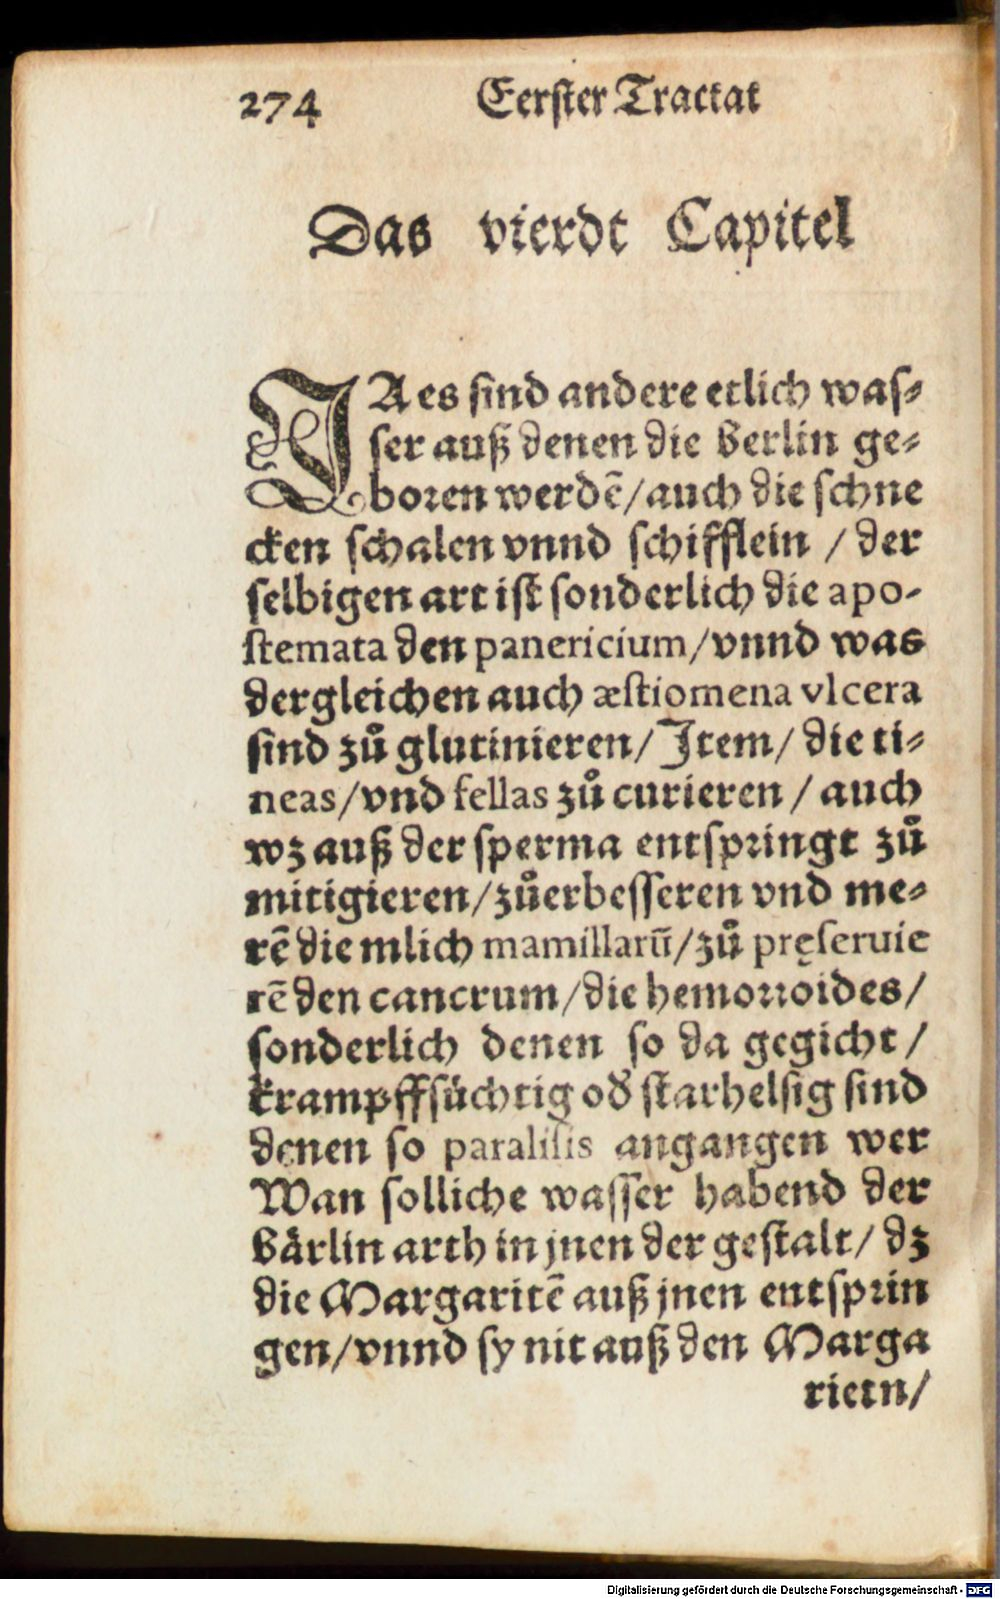 274 Eerster Tractat
Das vierdt Capitel
JA es sind andere etlich was⸗
ser auß denen die Berlin ge⸗
boren werdē/auch die schne
cken schalen vnnd schifflein / der
selbigen art ist sonderlich die apo-
stemata den panericium/vnnd was
dergleichen auch æstiomena vlcera
sind zů glutinieren/ Item/ die ti⸗
neas/vnd fellas zů curieren / auch
wz auß der sperma entspringt zů
mitigieren/zůerbesseren vnd me⸗
rē die mlich mamillarū/zů pręseruie
rē den cancrum/die hemorroides/
sonderlich denen so da gegicht /
krampffsüchtig od' starhelsig sind
denen so paralisis angangen wer
Wan solliche wasser habend der
Bärlin arth in jnen der gestalt/ dz
die Margaritē auß jnen entsprin
gen/vnnd sy nit auß den Marga
rietn/
Digitalisierung gefördert durch die Deutsche Forschungsgemeinschaft - DFG